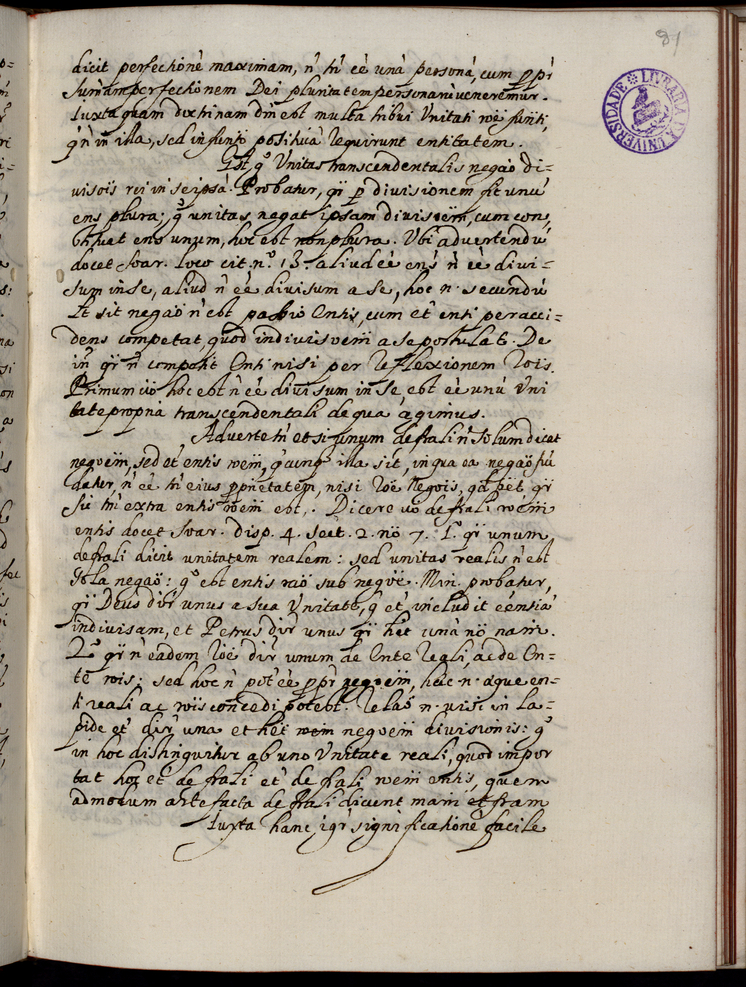 81
LIVRARIA DA UNIVERSIDADE
dicit perfectionē maximam, n̄ tn̄ ēe unā personā, cum ꝑ pr̄
sum̄am perfectionem Dei pluritatem personarū veneremur.
Iuxta quam doctrinam dn̄ est multa tribui Unitati
q̄ n̄ in illa, sed in positiva requirunt entitatem.
q̊ Unitas transcendentalis negaõ di=
visõis rei in se ipsā. Probatur, qr̄ ꝑ divisionem fit unū
ens plura; q̊ unitas negat ipsam divisoēm, cum con,
stituat ens unum, hoc est non plura. Ubi advertendū
docet Soar. loco cit. n.º 13. aliud ēe ens n̄ ēe divi=
sum in se, aliud n̄ ēe divisum a se, hoc n. secundū
Et sit negaõ n̄ est passio Entis, cum et̄ enti per acci=
dens competat, quod indivisoem a se postulat. De
in qr̄ n̄ competit Enti nisi per reflexionem rõis.
Primum vº hoc est n̄ ēe divisum in se est ēe unū Uni
tate propriā transcendentali de qua agimus.
Adverte tn̄ et si unum de frali n̄ solum dicat
negoēm, sed et̄ entis roēm, q̄cunq illa sit, in qua ea negaõ fū
datur, n̄ ēe tn̄ eius proprietatem, nisi rõe negõis, qd̄ pēt qr̄
sic tn̄ extra entis roēm est. Dicere vº de frali roēm
entis docet Soar. disp. 4. sect. 2. nõ 7. 1.º qr̄ unum
de frali dicit unitatem realem: sed unitas realis n̄ est
sola negaõ: q̊ est entis raõ sub negoē. Min. probatur,
qr̄ Deus dir̄ unus a sua Unitate, q̄ et̄ includit ēensiā
indivisam, et Petrus dir̄ unus qr̄ het̄ unā nõ nam̄.
2.º qr̄ n̄ eadem rõe dir̄ unum de Ente reali, ac de En=
te rõis: sed hoc n̄ potē ēe ꝑ pr̄ negoēm, hæc n. æque en=
ti reali ac rõis concedi potest. Relaõ n. visi in la=
pide et̄ dir̄ una et het̄ roem negoēm divisionis: q̊
in hoc distinguitur ab uno Unitate reali, quod impor
tat hoc et̄ de frali et̄ de frali roēm entis, quem
admodum artefacta de frali dicunt mam̄ et fram
Iuxta hanc igr̄ significationē facile